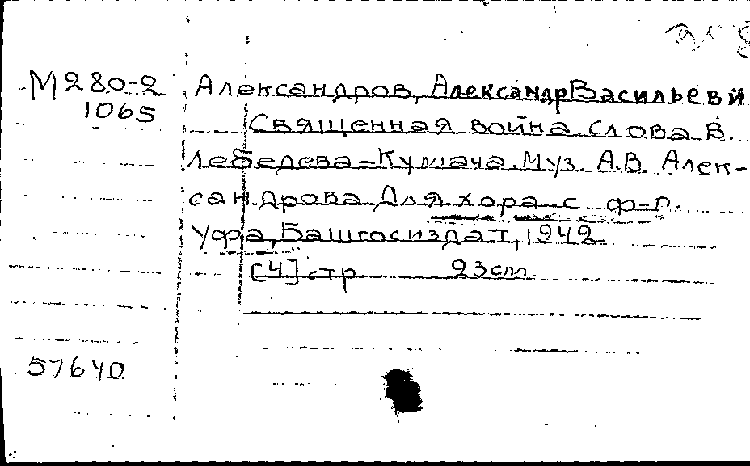 М280-2
1065
Александров, Александр Васильеви
Священная война Слова В.
Лебедева-Кумача. Муз. А.В. Алек-
сандрова Для хора с ф-п.
Уфа, Башгосиздат, 1942
[4] стр 23cm
57640